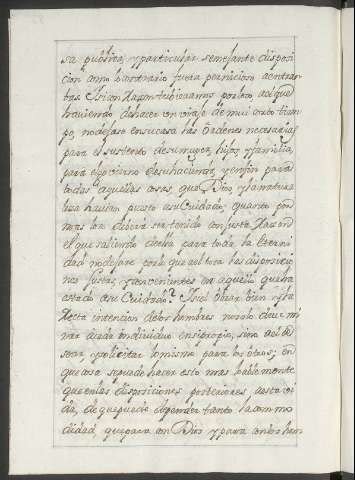 sa publica, y particular semejante disposi
cion, como lo contrario fuera pernicioso a entram
bas. Y si con razon tubieramos por loco, aél que
haviendo de hacer un viaje de mui corto tiem
po, no dejase en su casa las ordenes necesarias
para el sustento de su muger, hijos y familia,
para el govierno de su hacienda, y en fin para
todas aquellas cosas que Dios, y la natura
leza havian puesto a su Cuidado; quanto por
mas loco deverá ser tenido con justa razon
el que saliendo de ella para toda la Eterni
dad no dejase por lo que aél toca las disposicio
nes justas, y convenientes en aquello que ha
estado a su Cuidado? Y si el obrar bien y la
recta intencion de los hombres no solo deve mi
rar á cada individuo en si propio, sino aél de
sear, y solicitar lo mismo para los otros; en
que caso se puede hacer esto mas noblemente
que en las disposiciones posteriores a esta vi
da, de que puede depender tanto la commo
didad, que para con Dios y para con los hom